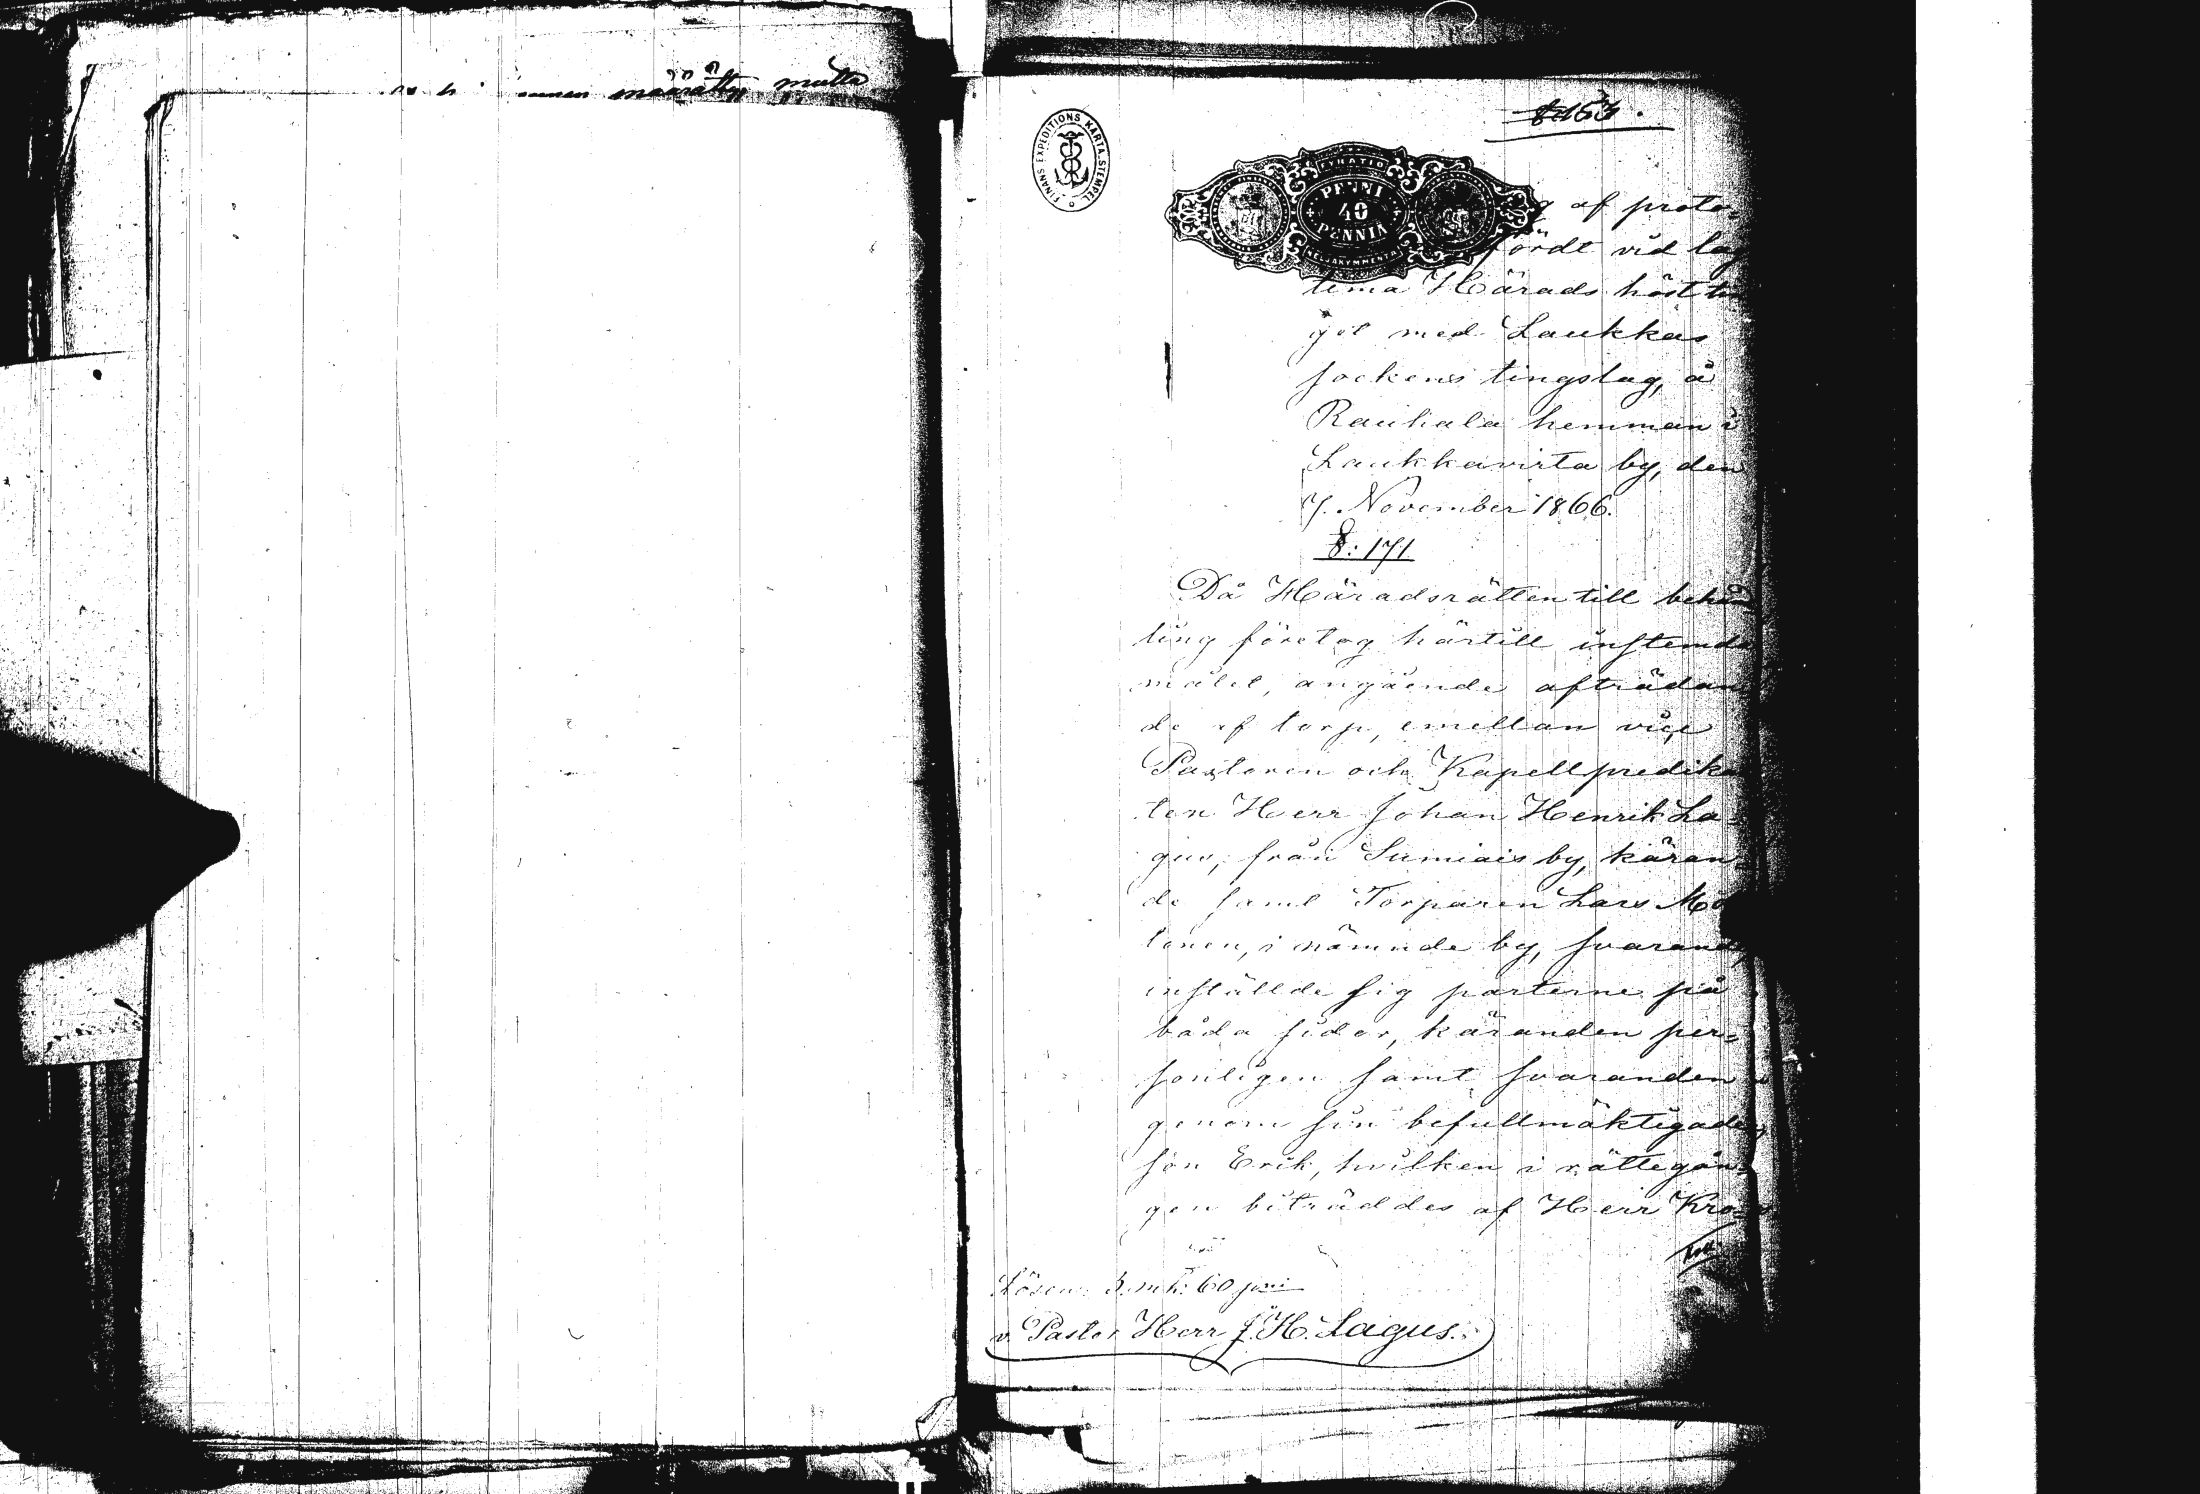 määrätty mutta
FINANS EXPEDITIONS KARTA.STEMPEL
PENNI
40
PENNIÄ
NELJÄKYMMENTÄ
af proto-
fördt vid lag
tima Härads höstting
get med Laukkas
sockens tingslag, å
Rauhala hemman i
Laukkavirta by, den
7. November 1866.
§: 171
Då Häradsrätten till behand
ling företog härtill instemda
målet, angående afträdan
de af torp, emellan vice
Pastoren och Kapellpredikan
ten Herr Johan Henrik La-
gus, från Sumiais by, käran-
de samt Torparen Lars
i nämnde by, svarande,
inställde sig parterne på
båda sidor, käranden per-
sonligen samt svaranden
genom sin befullmäktigade
son Erik, hvilken i rättegån-
gen biträddes af Herr Kro-
Lösen: 3. mk: 60 pni
v. Pastor Herr J. H. Lagus.